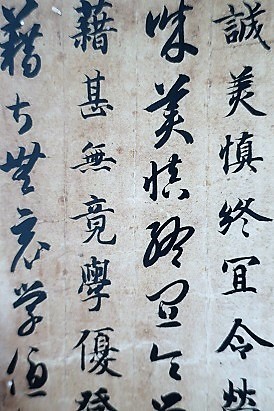 誠美慎終宜令
誠美慎終宜令
藉甚無竟學優登
藉甚無竟学優